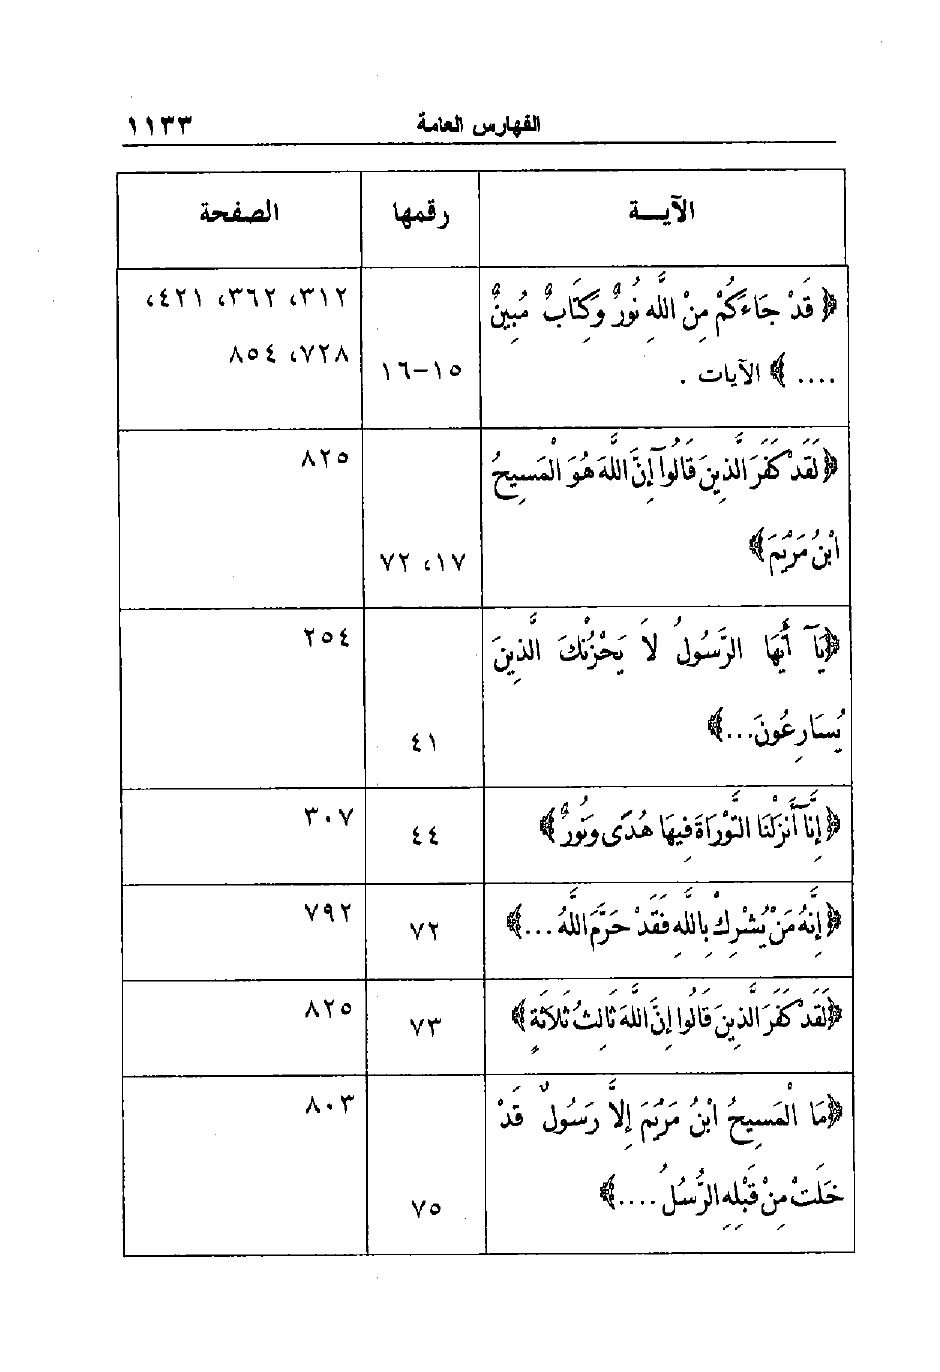 الفهارس العامة ١١٣٣
الآيـــة رقمها الصفحة
﴿ قَدْ جَاءَكُمْ مِنْ اللَّهِ نُورٌ وَكِتَابٌ مُبِينٌ ٣١٢، ٣٦٢، ٤٢١،
.... ﴾ الآيات . ١٥-١٦ ٧٢٨، ٨٥٤
﴿لَقَدْ كَفَرَ الَّذِينَ قَالُوآ إِنَّ اللَّهَ هُوَ الْمَسِيحُ ٨٢٥
ابْنُ مَرْيَمَ﴾ ١٧، ٧٢
﴿يَآ أَيُّهَا الرَّسُولُ لاَ يَحْزُنْكَ الَّذِينَ ٢٥٤
يُسَارِعُونَ...﴾ ٤١
﴿إِنَّآ أَنْزَلْنَا التَّوْرَاةَ فِيهَا هُدًى وَنُورٌ﴾ ٤٤ ٣٠٧
﴿إِنَّهُ مَنْ يُشْرِكْ بِاللَّهِ فَقَدْ حَرَّمَ اللَّهُ ...﴾ ٧٢ ٧٩٢
﴿لَقَدْ كَفَرَ الَّذِينَ قَالُوا إِنَّ اللَّهَ ثَالِثُ ثَلاَثَةٍ﴾ ٧٣ ٨٢٥
﴿مَا الْمَسِيحُ ابْنُ مَرْيَمَ إِلاَّ رَسُولٌ قَدْ ٨٠٣
خَلَتْ مِنْ قَبْلِهِ الرُّسُلُ ....﴾ ٧٥